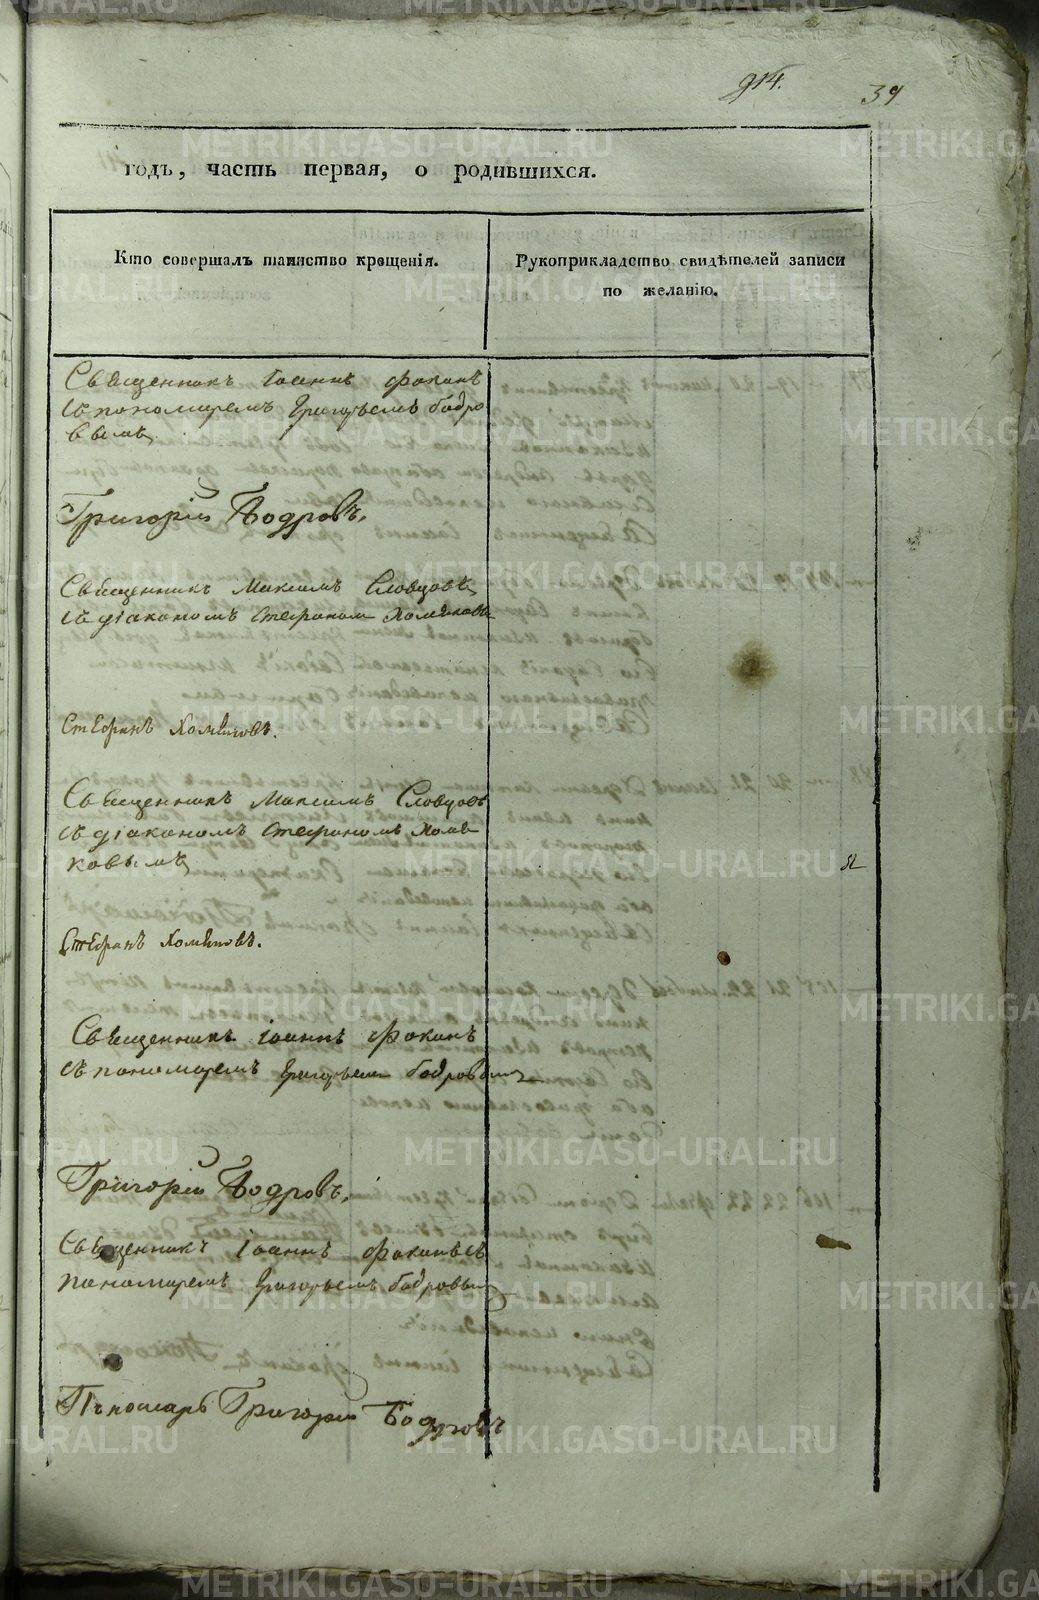 914.
39
годъ, часть первая, о родившихся.
Кто совершалъ таинство крещенія.
Рукоприкладство свидѣтелей записи
по желанію.
Священникъ Іоаннъ Фокинъ
съ пономаремъ Григорьемъ Бодро
вымъ
Григорій Бодровъ.
Священникъ Максимъ Словцовъ
съ діакономъ Стефаномъ Хомяковъ
Стефанъ Хомяковъ.
Священникъ Максимъ Словцовъ
съ діакономъ Стефаномъ Хомя
ковымъ
Стефанъ Хомяковъ.
Священникъ Іоаннъ Фокинъ
съ пономаремъ Григорьемъ Бодровымъ
Григорій Бодровъ.
Священникъ Іоаннъ Фокинъ съ
пономаремъ Григорьемъ Бодровымъ
Пономарь Григорій Бодровъ
METRIKI.GASO-URAL.RU